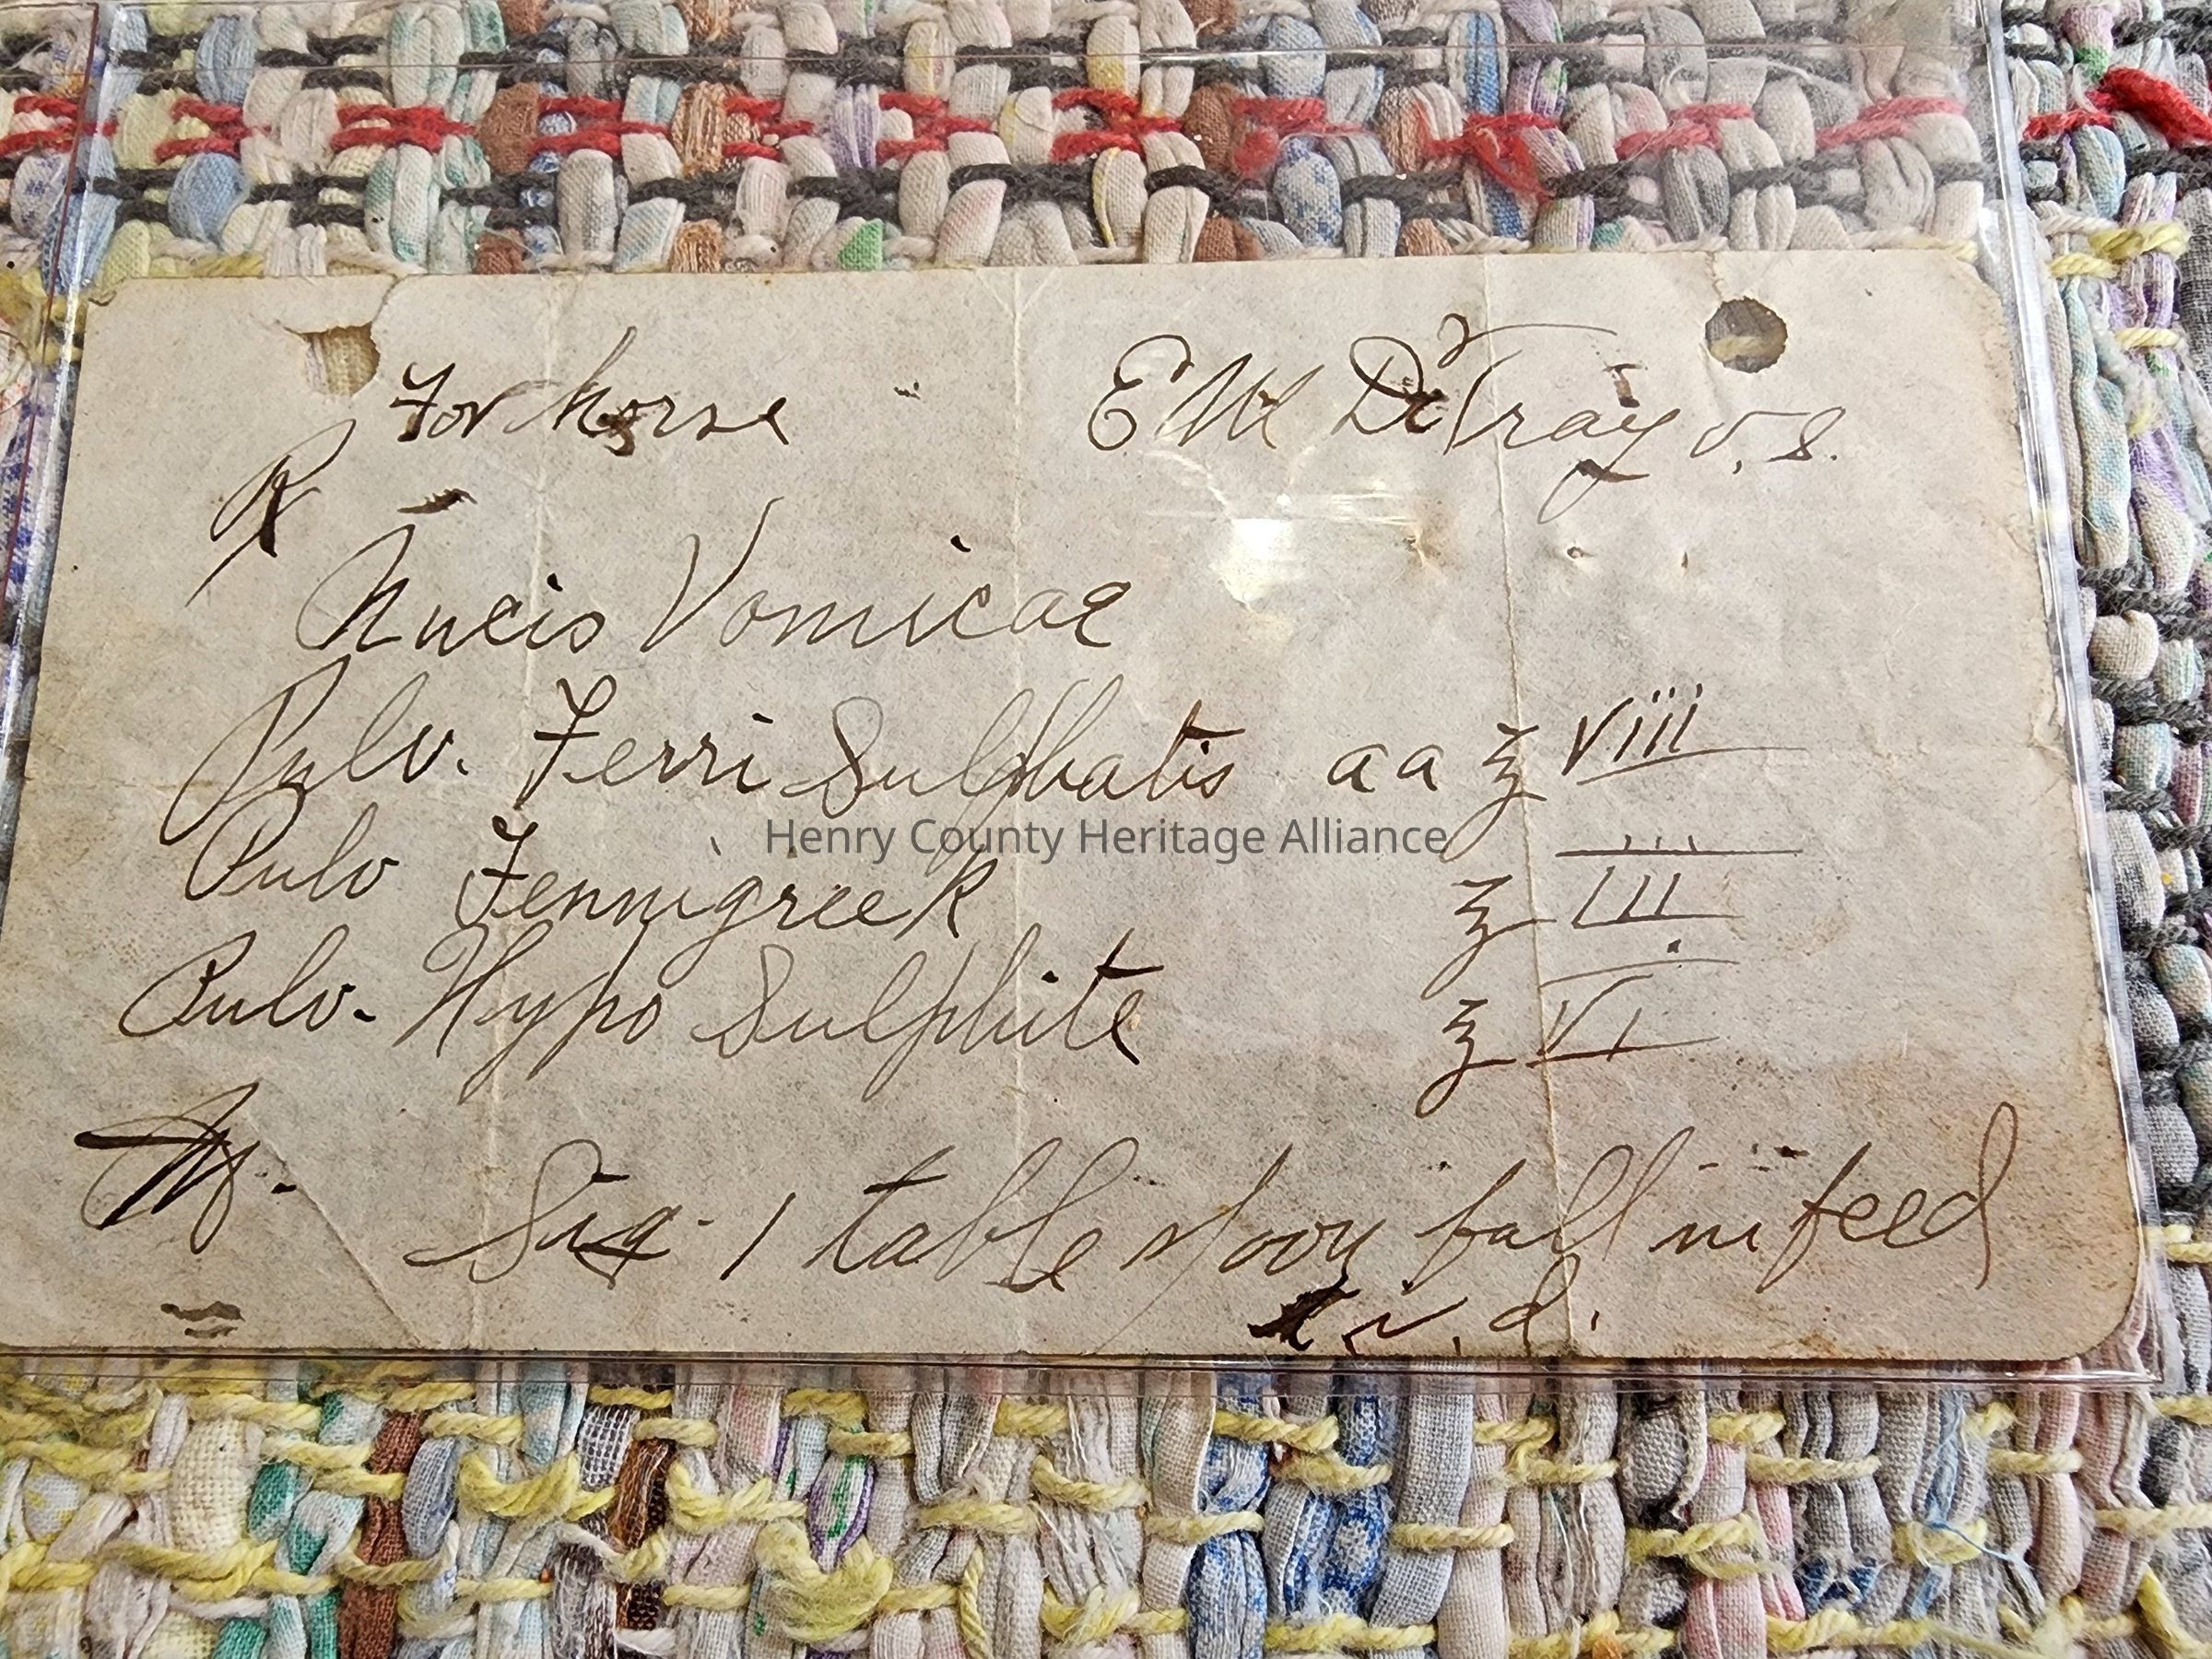 For horse E M DeTray v.s.
℞
Nucis Vomicae
Pulv. Ferri Sulphatis aa ℥ viii
Henry County Heritage Alliance
Pulv Fennigreek ℥ iii
Pulv. Hypo Sulphite ℥ vi
M. Sig. 1 table spoon full in feed
t.i.d.